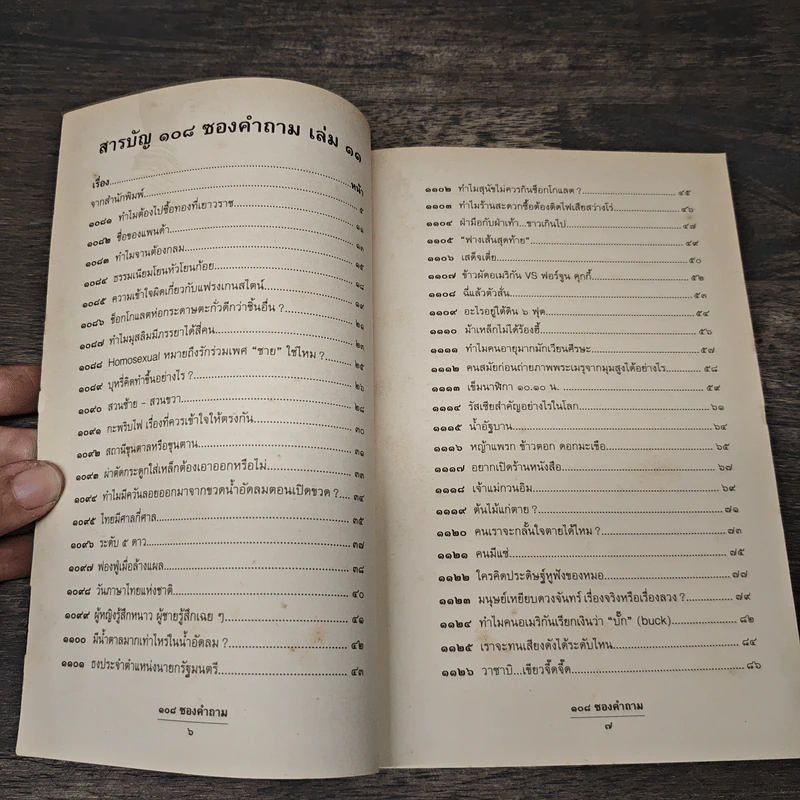 สารบัญ ๑๐๘ ซองคำถาม เล่ม ๑๑
เรื่อง....................หน้า
จากสำนักพิมพ์....................๕
๑๐๘๑ ทำไมต้องไปซื้อทองที่เยาวราช....................๑๑
๑๐๘๒ ชื่อของแพนด้า....................๑๓
๑๐๘๓ ทำไมจานต้องกลม....................๑๕
๑๐๘๔ ธรรมเนียมโยนหัวโยนก้อย....................๑๘
๑๐๘๕ ความเข้าใจผิดเกี่ยวกับแฟรงเกนสไตน์....................๑๙
๑๐๘๖ ช็อกโกแลตห่อกระดาษตะกั่วดีกว่าชิ้นอื่น ?....................๒๑
๑๐๘๗ ทำไมมุสลิมมีภรรยาได้สี่คน....................๒๓
๑๐๘๘ Homosexual หมายถึงรักร่วมเพศ "ชาย" ใช่ไหม ?....................๒๕
๑๐๘๙ บุหรี่คิดทำขึ้นอย่างไร ?....................๒๖
๑๐๙๐ สวนซ้าย - สวนขวา....................๒๘
๑๐๙๑ กะพริบไฟ เรื่องที่ควรเข้าใจให้ตรงกัน....................๓๐
๑๐๙๒ สถานีขุนตาลหรือขุนตาน....................๓๑
๑๐๙๓ ผ่าตัดกระดูกใส่เหล็กต้องเอาออกหรือไม่....................๓๓
๑๐๙๔ ทำไมมีควันลอยออกมาจากขวดน้ำอัดลมตอนเปิดขวด ?....๓๔
๑๐๙๕ ไทยมีศาลกี่ศาล....................๓๕
๑๐๙๖ ระดับ ๕ ดาว....................๓๗
๑๐๙๗ ฟองฟู่เมื่อล้างแผล....................๓๘
๑๐๙๘ วันภาษาไทยแห่งชาติ....................๔๐
๑๐๙๙ ผู้หญิงรู้สึกหนาว ผู้ชายรู้สึกเฉย ๆ....................๔๑
๑๑๐๐ มีน้ำตาลมากเท่าไหร่ในน้ำอัดลม ?....................๔๒
๑๑๐๑ ธงประจำตำแหน่งนายกรัฐมนตรี....................๔๓
๑๐๘ ซองคำถาม
๖
๑๑๐๒ ทำไมสุนัขไม่ควรกินช็อกโกแลต ?....................๔๕
๑๑๐๓ ทำไมร้านสะดวกซื้อต้องติดไฟเสียสว่างโร่....................๔๖
๑๑๐๔ ฝ่ามือกับฝ่าเท้า...ขาวเกินไป....................๔๗
๑๑๐๕ "ฟางเส้นสุดท้าย"....................๔๙
๑๑๐๖ เสด็จเตี่ย....................๕๐
๑๑๐๗ ข้าวผัดอเมริกัน VS ฟอร์จูน คุกกี้....................๕๒
๑๑๐๘ ฉี่แล้วตัวสั่น....................๕๓
๑๑๐๙ อะไรอยู่ใต้ดิน ๖ ฟุต....................๕๔
๑๑๑๐ ม้าเหล็กไม่ได้ร้องฮี้....................๕๖
๑๑๑๑ ทำไมคนอายุมากมักเวียนศีรษะ....................๕๗
๑๑๑๒ คนสมัยก่อนถ่ายภาพพระเมรุจากมุมสูงได้อย่างไร....................๕๘
๑๑๑๓ เข็มนาฬิกา ๑๐.๑๐ น. ....................๕๙
๑๑๑๔ รัสเซียสำคัญอย่างไรในโลก....................๖๑
๑๑๑๕ น้ำอัฐบาน....................๖๔
๑๑๑๖ หญ้าแพรก ข้าวตอก ดอกมะเขือ....................๖๕
๑๑๑๗ อยากเปิดร้านหนังสือ....................๖๗
๑๑๑๘ เจ้าแม่กวนอิม....................๖๙
๑๑๑๙ ต้นไม้แก่ตาย ?....................๗๑
๑๑๒๐ คนเราจะกลั้นใจตายได้ไหม ?....................๗๓
๑๑๒๑ คนมีแซ่....................๗๕
๑๑๒๒ ใครคิดประดิษฐ์หูฟังของหมอ....................๗๗
๑๑๒๓ มนุษย์เหยียบดวงจันทร์ เรื่องจริงหรือเรื่องลวง ?....................๗๙
๑๑๒๔ ทำไมคนอเมริกันเรียกเงินว่า "บั๊ก" (buck)....................๘๒
๑๑๒๕ เราจะทนเสียงดังได้ระดับไหน....................๘๔
๑๑๒๖ วาซาบิ...เขียวจี๊ดจี๊ด....................๘๖
๑๐๘ ซองคำถาม
๗